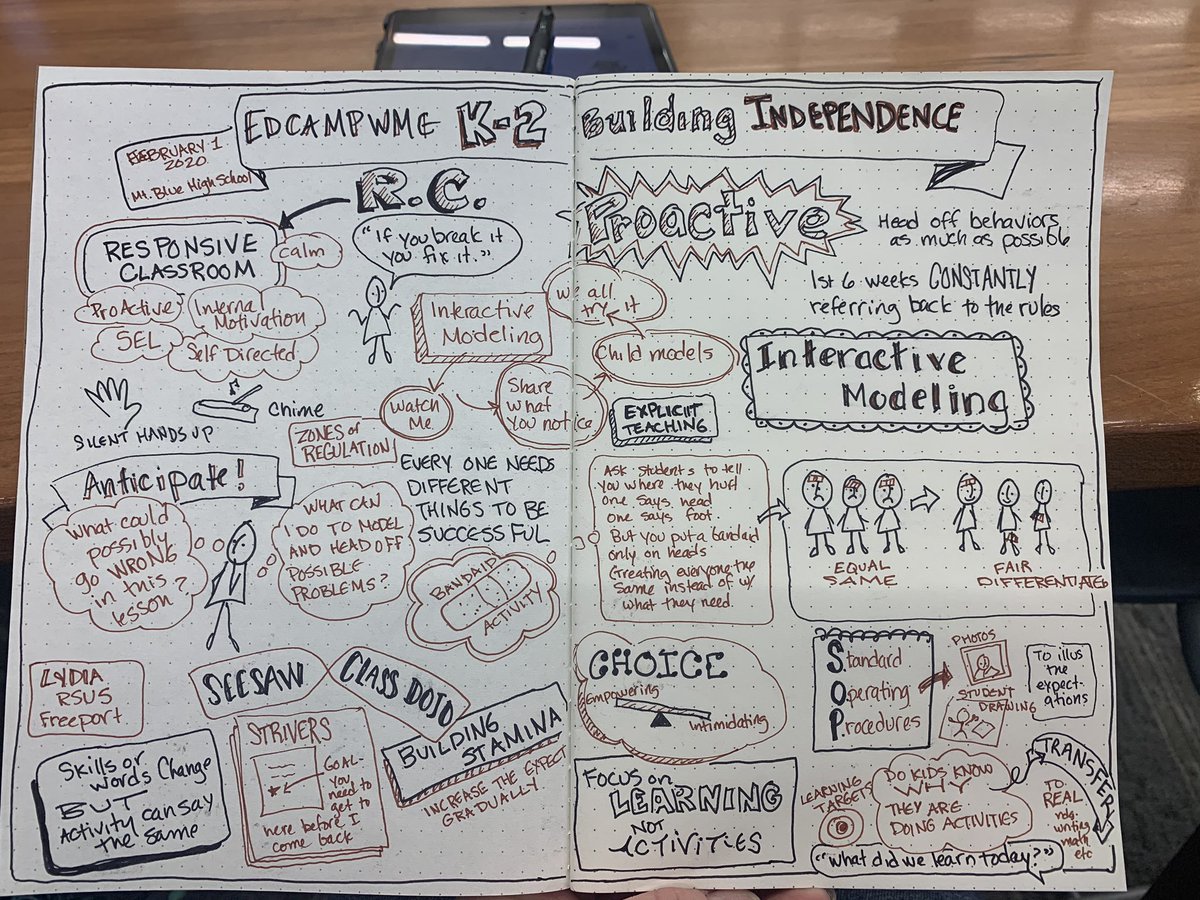 EDCAMPWME K-2 Building INDEPENDENCE
FEBRUARY 1
2020
Mt. Blue High School
R.C.
RESPONSIVE
CLASSROOM
calm
ProActive
Internal
Motivation
SEL
Self Directed
"If you break it
you fix it."
Interactive
Modeling
Watch
Me
Share
what
you notice
Child models
we all
try it
SILENT HANDS UP
Chime
ZONES of
REGULATION
Anticipate!
What could
possibly
go WRONG
in this
lesson?
WHAT CAN
I DO TO MODEL
AND HEAD OFF
POSSIBLE
PROBLEMS?
EVERY ONE NEEDS
DIFFERENT
THINGS TO BE
SUCCESSFUL
BANDAID
ACTIVITY
LYDIA
RSU5
Freeport
SEESAW
CLASS DOJO
STRIVERS
GOAL-
you
need to
get to
here before I
come back
BUILDING
STAMINA
INCREASE THE EXPECT
GRADUALLY
Skills or
words Change
BUT
Activity can say
the same
Proactive
Head off behaviors
as much as possible
1st 6 weeks CONSTANTLY
referring back to the rules
Interactive
Modeling
EXPLICIT
TEACHING
Ask students to tell
you where they hurt
one says head
one says foot
But you put a bandaid
only on heads
Creating everyone the
same instead of w/
what they need.
EQUAL
SAME
FAIR
DIFFERENTIATED
CHOICE
Empowering
Intimidating
Standard
Operating
Procedures
PHOTOS
STUDENT
DRAWING
To illus
the
expect-
ations
Focus on
LEARNING
NOT
ACTIVITIES
LEARNING
TARGETS
DO KIDS KNOW
WHY
THEY ARE
DOING ACTIVITIES
TRANSFER
TO
REAL
rdg
writing
math
etc
"What did we learn today?"